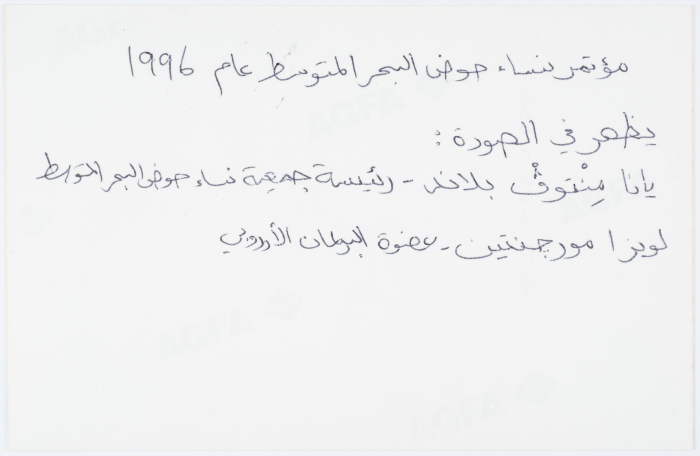 مؤتمر نساء حوض البحر المتوسط عام 1996
يظهر في الصورة :
يانا مِنْتوفْ بلاند - رئيسة جمعية نساء حوض البحر المتوسط
لويزا مورجنتين - عضوة البرلمان الأوروبي
AGFA
AGFA
AGFA
AGFA